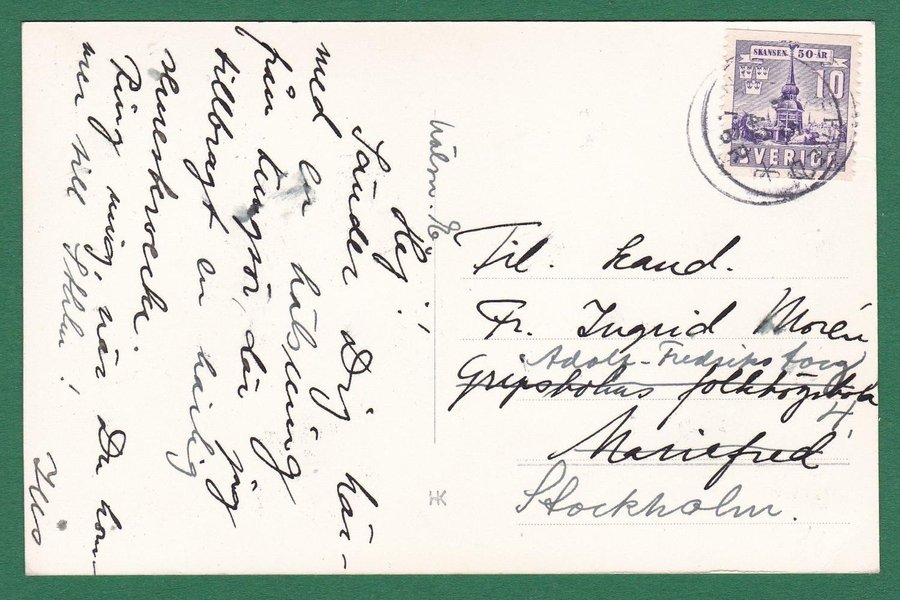 Hej!
Sänder Dig här-
med en hälsning
från Lungsör, där jag
tillbragt en härlig
semestervecka.
Ring mig, när Du kom-
mer till Sthlm!
SKANSEN 50 ÅR
10
SVERIGE
Fil. kand.
Fr. Ingrid Morén
Adolf-Fredriks torg
Gripsholms folkhögskola
4
Mariefred
Stockholm.